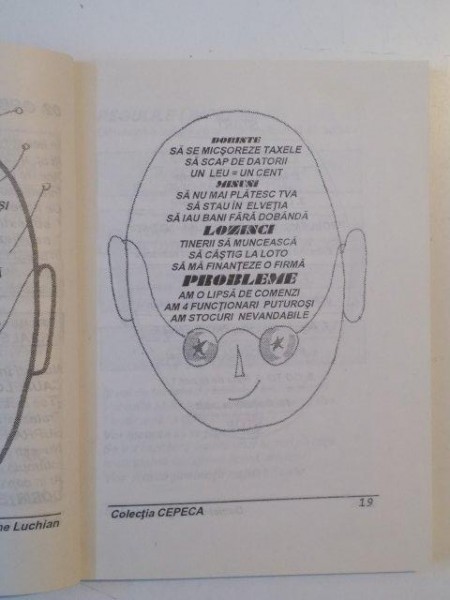 ȘI
DORINTE
SĂ SE MICȘOREZE TAXELE
SĂ SCAP DE DATORII
UN LEU = UN CENT
MISUNI
SĂ NU MAI PLĂTESC TVA
SĂ STAU ÎN ELVEȚIA
SĂ IAU BANI FĂRĂ DOBÂNDĂ
LOZINCI
TINERII SĂ MUNCEASCĂ
SĂ CÂȘTIG LA LOTO
SĂ MĂ FINANȚEZE O FIRMĂ
PROBLEME
AM O LIPSĂ DE COMENZI
AM 4 FUNCȚIONARI PUTUROȘI
AM STOCURI NEVANDABILE
Luchian
Colecția CEPECA
19